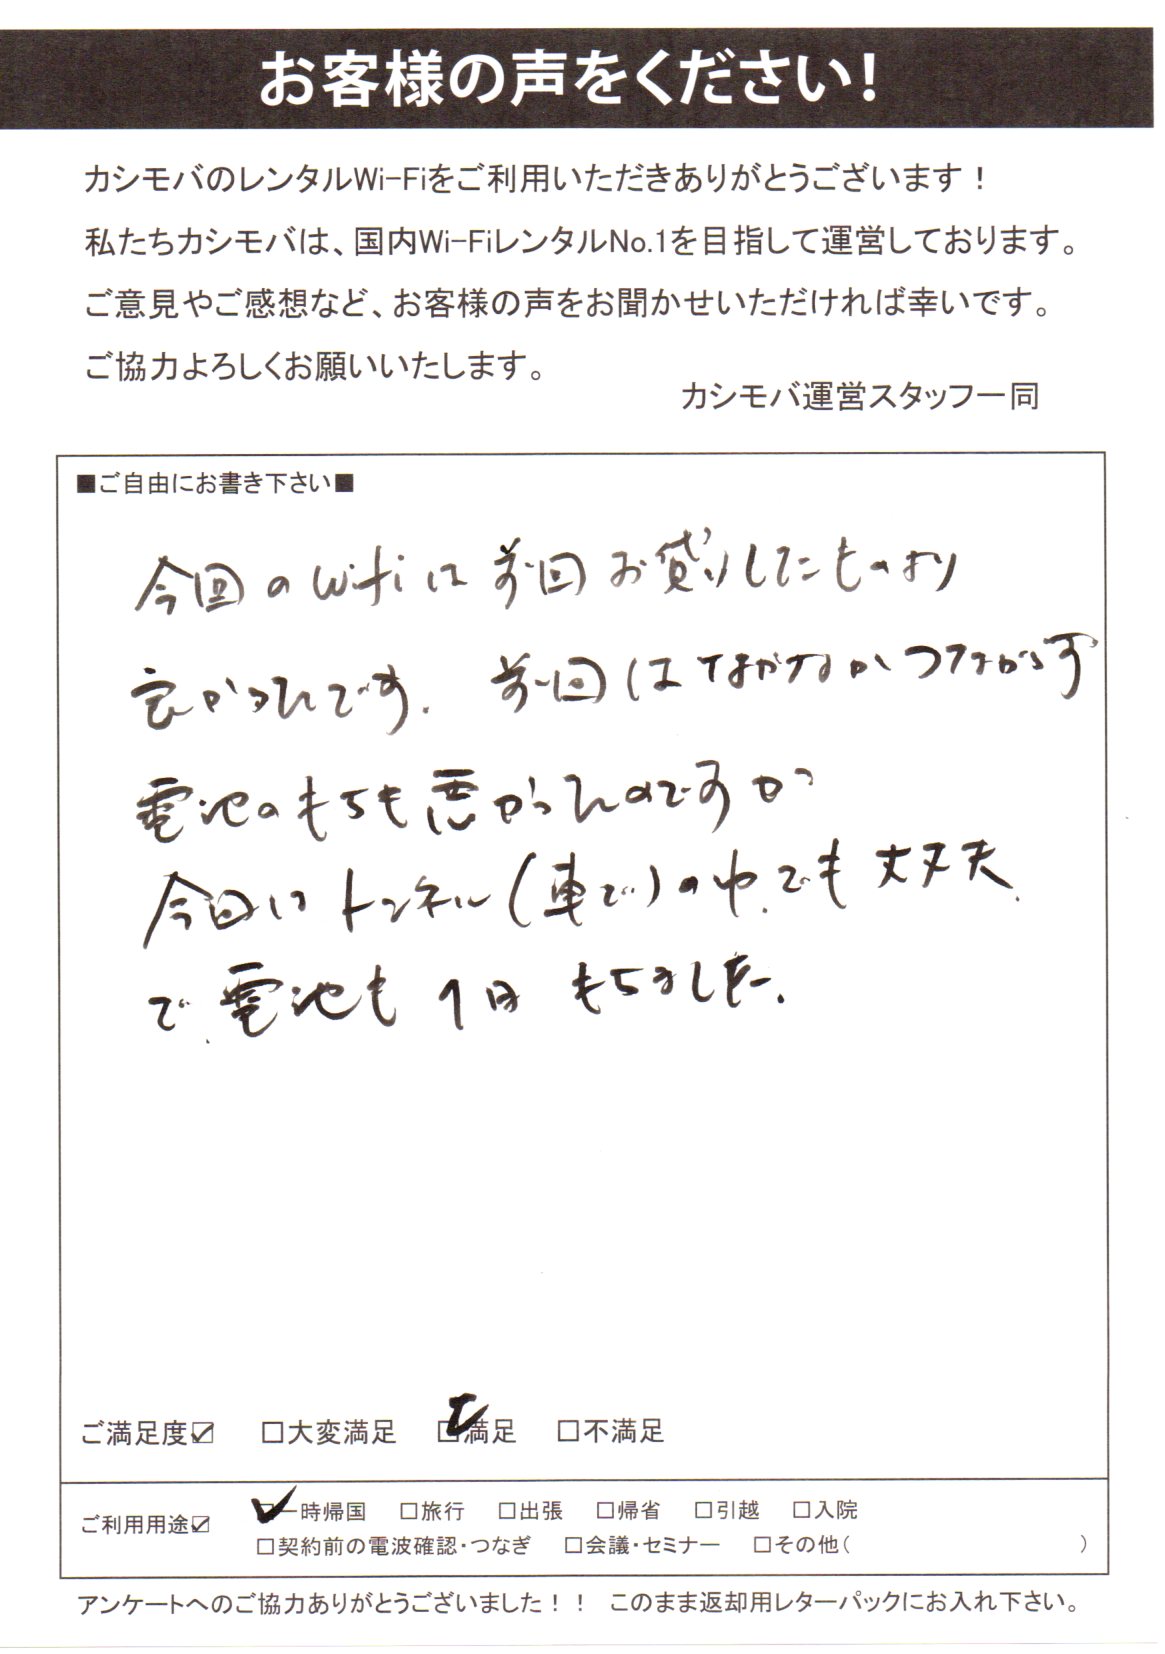 お客様の声をください!
カシモバのレンタルWi-Fiをご利用いただきありがとうございます！
私たちカシモバは、国内Wi-FiレンタルNo.1を目指して運営しております。
ご意見やご感想など、お客様の声をお聞かせいただければ幸いです。
ご協力よろしくお願いいたします。
カシモバ運営スタッフ一同
■ご自由にお書き下さい■
今回のwifiは前回お貸りしたものより
良かったです. 前回はなかなかつながらず
電池のもちも悪かったのですが
今回はトンネル(車で)の中でも丈夫
で電池も1日もちました.
ご満足度☑ □大変満足 ☑満足 □不満足
ご利用用途☑ ☑一時帰国 □旅行 □出張 □帰省 □引越 □入院
□契約前の電波確認・つなぎ □会議・セミナー □その他( )
アンケートへのご協力ありがとうございました！！ このまま返却用レターパックにお入れ下さい。